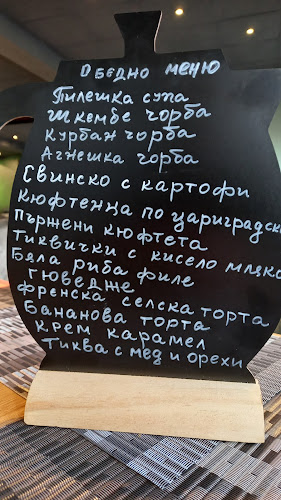 Обедно меню
Пилешка супа
Шкембе чорба
Курбан чорба
Агнешка чорба
Свинско с картофи
Кюфтенца по цариградски
Пържени кюфтета
Тиквички с кисело мляко
Бяла риба филе
гюведже
френска селска торта
Бананова торта
крем карамел
Тиква с мед и орехи